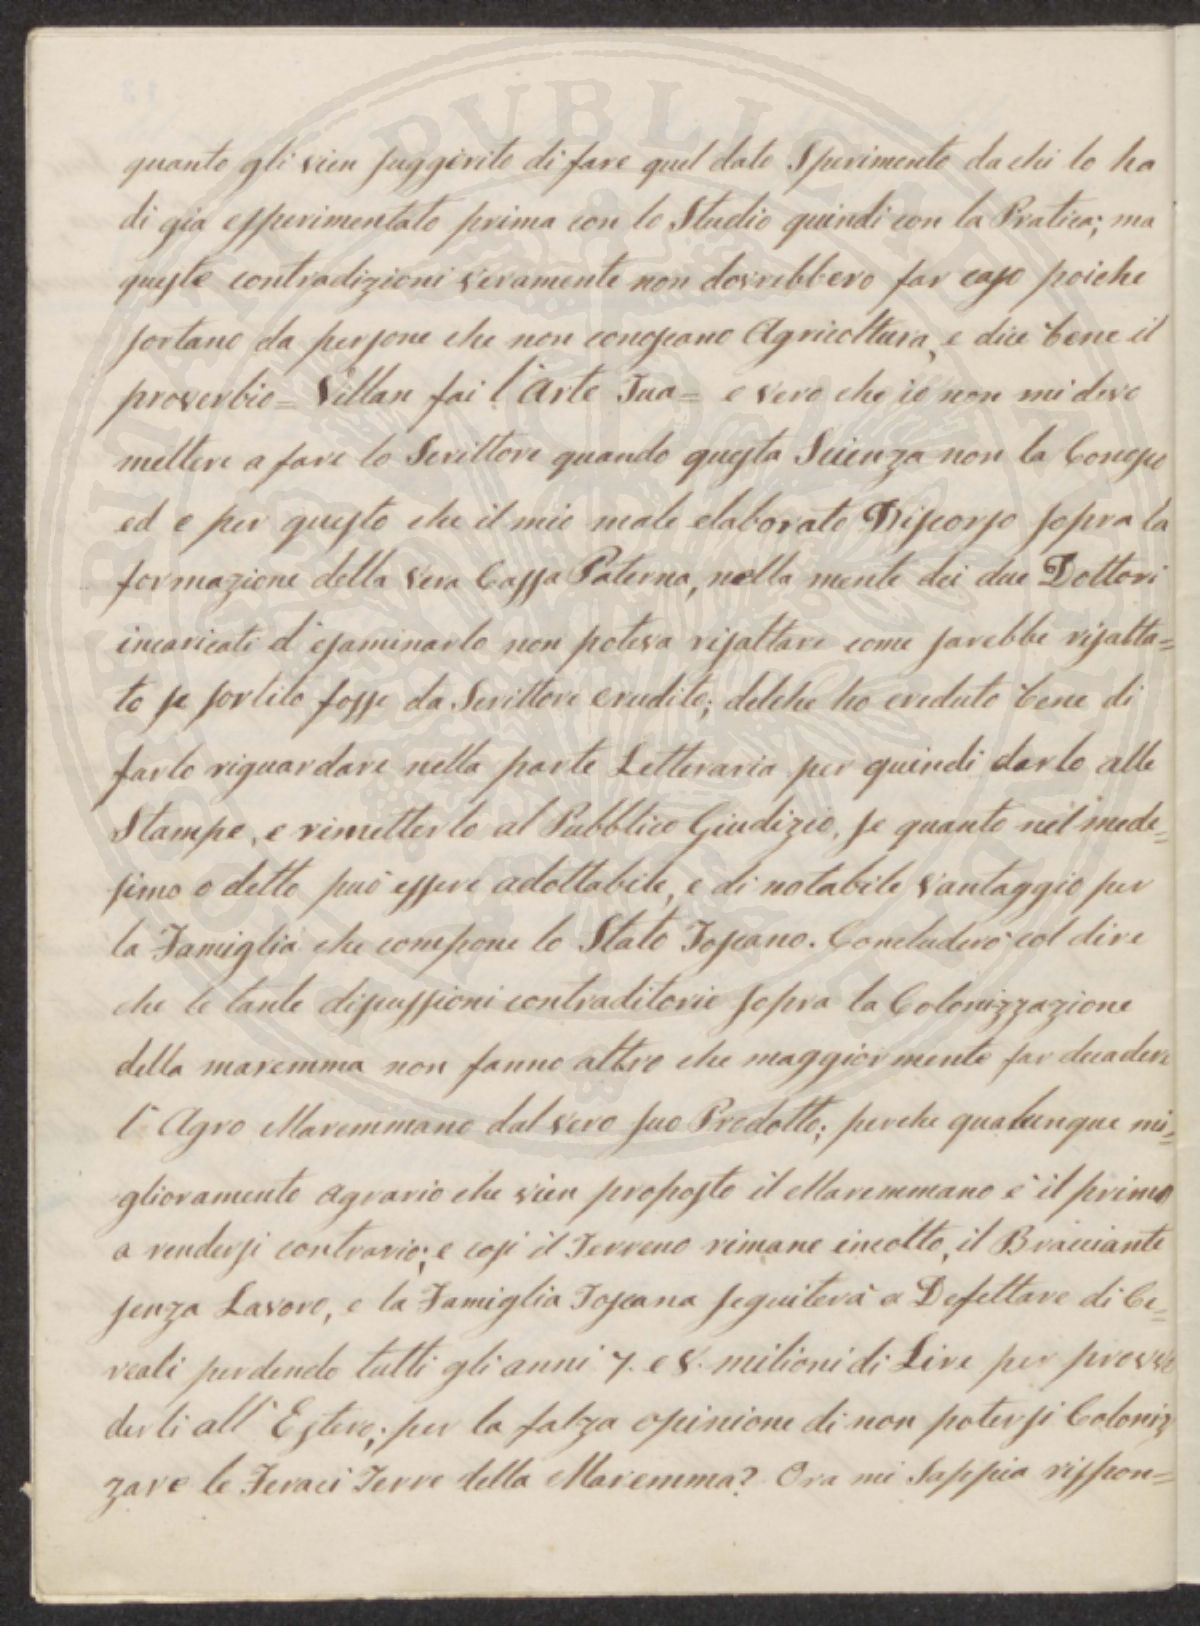 quanto gli vien suggerito di fare quel dato Sperimento da chi lo ha
di gia essperimentato prima con lo Studio quindi con la Pratica; ma
queste contradizioni veramente non dovrebbero far caso poiche
sortano da persone che non conoscano Agricoltura, e dice bene il
proverbio = Villan fai l'Arte Tua = e vero che io non mi devo
mettere a fare lo Scrittore quando questa Scienza non la Conosco
ed e per questo che il mio male elaborato Discorso sopra la
formazione della vera Cassa Paterna, nella mente dei due Dottori
incaricati d'esaminarlo non poteva risaltare come sarebbe risalta=
to se sortito fosse da Scrittore erudito; delche ho creduto bene di
farlo riguardare nella parte Letteraria per quindi darlo alle
Stampe, e rimetterlo al Pubblico Giudizio, se quanto nel mede=
simo o detto può essere adottabile, e di notabile vantaggio per
la Famiglia che compone lo Stato Toscano. Concluderò col dire
che le tante discussioni contraditorie sopra la Colonizzazione
della maremma non fanno altro che maggiormente far decadere
l'Agro Maremmano dal vero suo Prodotto; perche qualunque mi=
glioramento agrario che vien proposto il Maremmano e' il primo
a rendersi contrario; e cosi il Terreno rimane incolto, il Bracciante
senza Lavoro, e la Famiglia Toscana seguiterà a Defettare di Ce=
reali perdendo tutti gli anni 7. e 8. milioni di Lire per provve
derli all'Estero; per la falza opinione di non potersi Coloniz
zare le Feraci Terre della Maremma? Ora mi Sappia risspon=